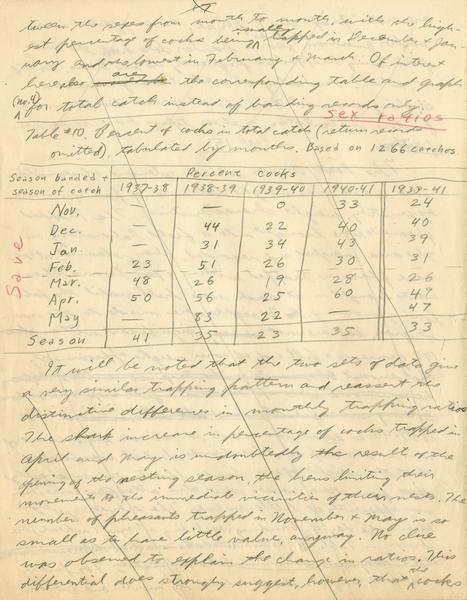 tween the sexes from month to month, with the high-
est percentage of cocks being small trapped in December & Jan-
uary and the lowest in February & March. Of interest
here also are the corresponding table and graph
(no. 4) for total catch instead of banding records only.
Sex ratios
Table #10. Percent of cocks in total catch (return records
omitted), tabulated by months. Based on 1266 catches.
Season banded + Percent cocks
season of catch 1937-38 1938-39 1939-40 1940-41 1938-41
Nov. — — 0 33 24
Dec. — 44 22 40 40
Jan. — 31 34 43 39
Feb. 23 51 26 30 31
Mar. 48 26 19 28 26
Apr. 50 56 25 60 49
May — 83 22 — 47
Season 41 35 23 35 33
Save
It will be noted that the two sets of data give
a very similar trapping pattern and reassert the
distinctive differences in monthly trapping ratios.
The sharp increase in percentage of cocks trapped in
April and May is undoubtedly the result of the
opening of the nesting season, the hens limiting their
movements to the immediate vicinities of their nests. The
number of pheasants trapped in November & May is so
small as to have little value, anyway. No clue
was observed to explain the change in ratios. This
differential does strongly suggest, however, that the cocks